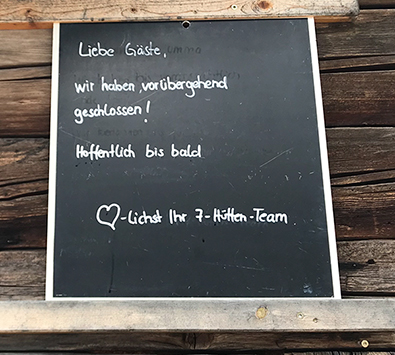 Liebe Gäste,
wir haben vorübergehend
geschlossen!
Hoffentlich bis bald
♡-Lichst Ihr 7-Hütten-Team